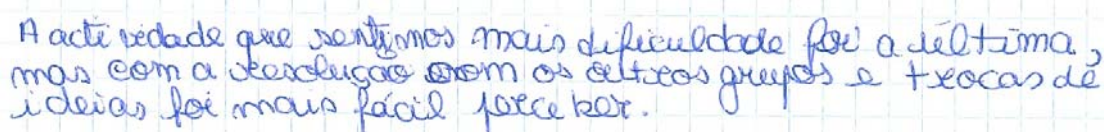 A actividade que sentimos mais dificuldade foi a última,
mas com a resolução com os outros grupos e trocas de
ideias foi mais fácil perceber.